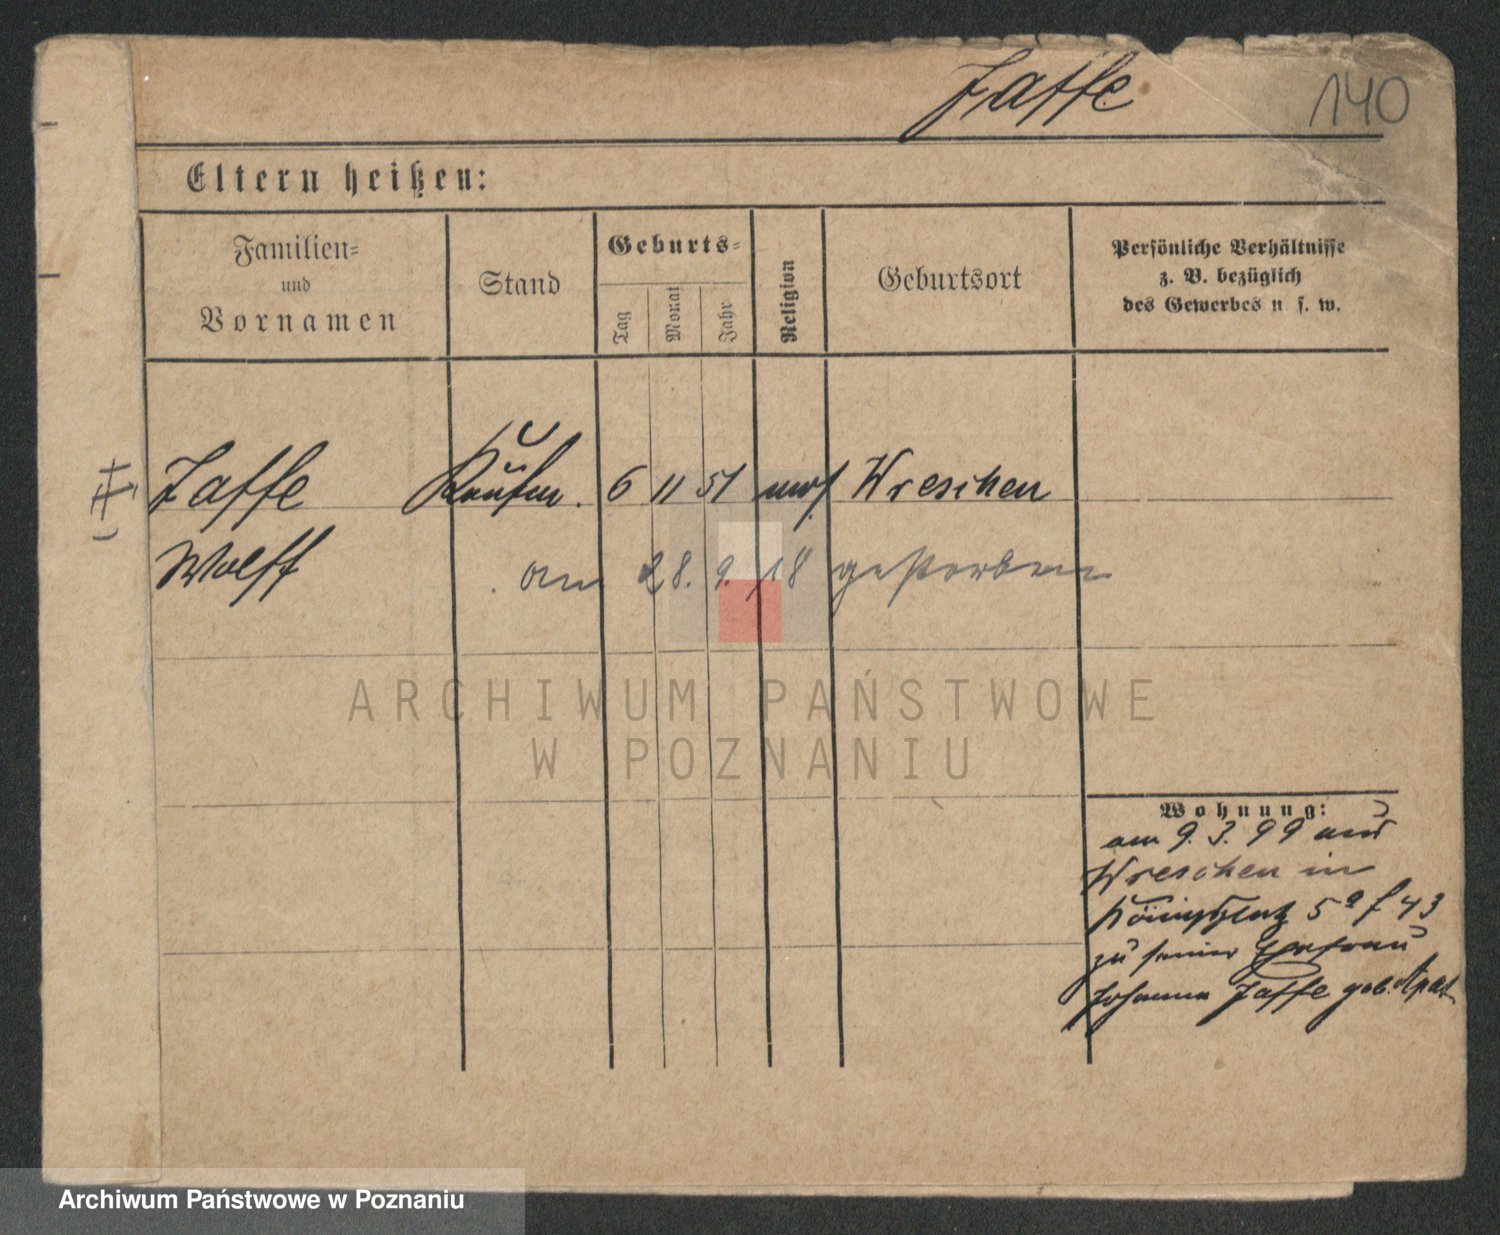 Jaffe
140
Eltern heißen:
Familien-
und
Vornamen
Stand
Geburts-
Tag
Monat
Jahr
Religion
Geburtsort
Persönliche Verhältnisse
z. B. bezüglich
des Gewerbes u. s. w.
Jaffe Kaufm. 6 11 51 mos. Wreschen
Wolff am 28. 9. 18 gestorben
Wohnung:
am 9. 3. 99 aus
Wreschen in
Königsplatz 5a 43
zu seiner Ehefrau
Johanna Jaffe geb.
ARCHIWUM PAŃSTWOWE
W POZNANIU
Archiwum Państwowe w Poznaniu